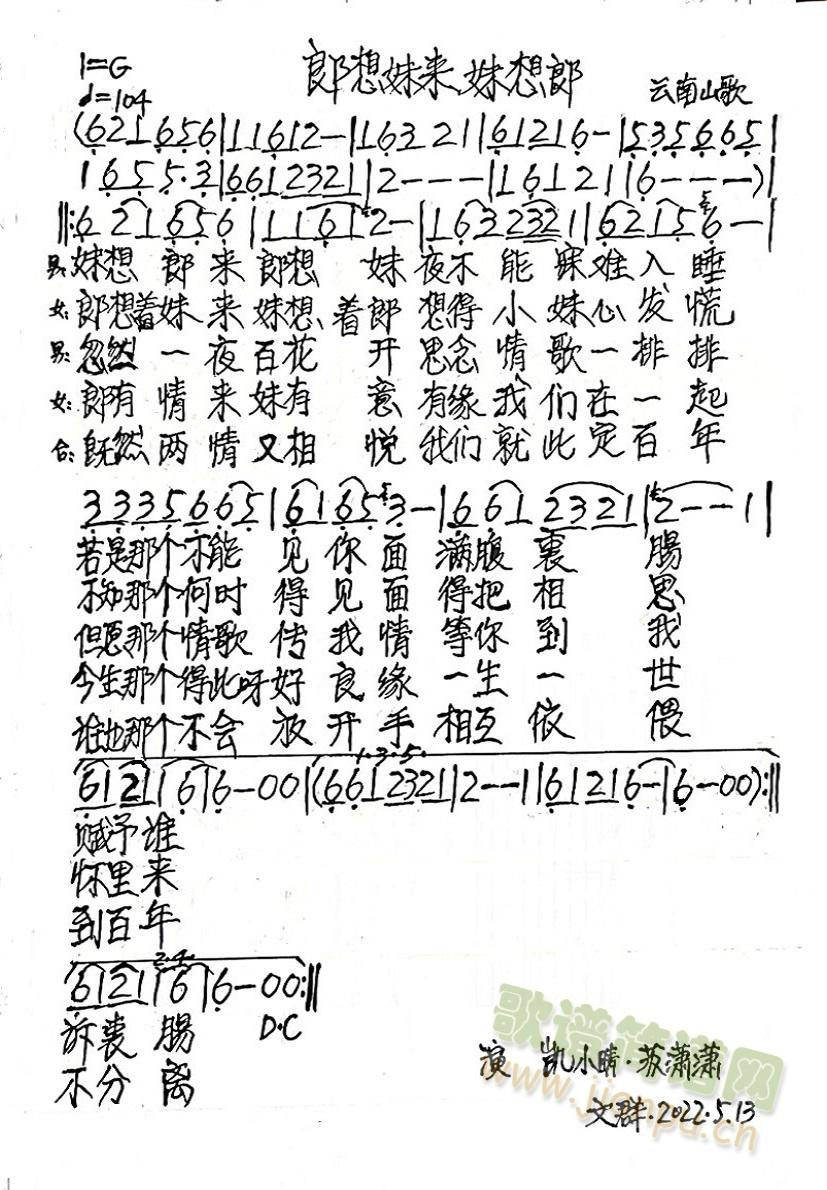 1=G
郎想妹来妹想郎
♩=104
云南山歌
(621 656|11612-|163 21|61216-|5356665|
1655·3|6612321|2---|16121|6---)|
||:621656|11612-|1632321|62156--|
男:妹想 郎来郎想 妹夜不能寐难入睡
女:郎想着妹来妹想着郎想得小妹心发慌
男:忽然一夜百花开思念情歌一排排
女:郎有情来妹有意有缘我们在一起
合:既然两情又相悦我们就此定百年
3335665|61653-|6612321|2--1|
若是那个不能见你面满腹衷腸
不知那个何时得见面得把相思
但愿那个情歌传我情等你到我
今生那个得此呀好良缘一生一世
谁也那个不会放开手相互依偎
1·3·5·
6121|6|6-00|(6612321|2--1|61216-|6-00):||
赋予谁
怀里来
到百年
2·4·
6121|6|6-00:||
诉衷腸 D·C
不分离
演 凯小晴·苏潇潇
文群·2022·5.13
歌谱简谱网
www.jianpu.cn